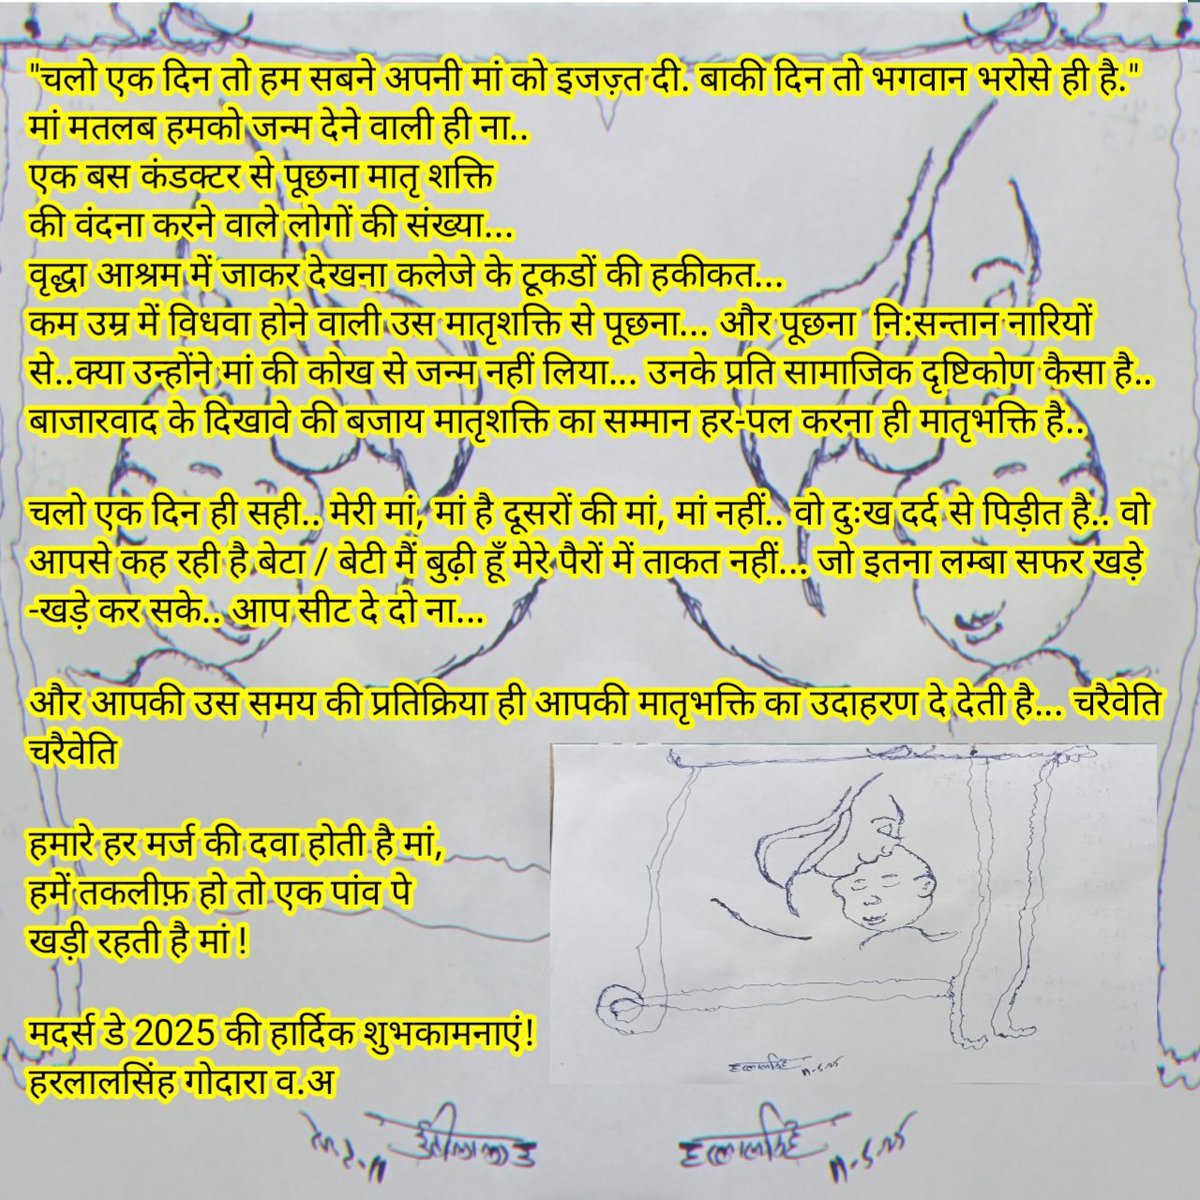 "चलो एक दिन तो हम सबने अपनी मां को इजज़्त दी. बाकी दिन तो भगवान भरोसे ही है."
मां मतलब हमको जन्म देने वाली ही ना..
एक बस कंडक्टर से पूछना मातृ शक्ति
की वंदना करने वाले लोगों की संख्या...
वृद्धा आश्रम में जाकर देखना कलेजे के टूकडों की हकीकत...
कम उम्र में विधवा होने वाली उस मातृशक्ति से पूछना... और पूछना नि:सन्तान नारियों
से..क्या उन्होंने मां की कोख से जन्म नहीं लिया... उनके प्रति सामाजिक दृष्टिकोण कैसा है..
बाजारवाद के दिखावे की बजाय मातृशक्ति का सम्मान हर-पल करना ही मातृभक्ति है..
चलो एक दिन ही सही.. मेरी मां, मां है दूसरों की मां, मां नहीं.. वो दुःख दर्द से पिड़ीत है.. वो
आपसे कह रही है बेटा / बेटी मैं बुढ़ी हूँ मेरे पैरों में ताकत नहीं... जो इतना लम्बा सफर खड़े
-खड़े कर सके.. आप सीट दे दो ना...
और आपकी उस समय की प्रतिक्रिया ही आपकी मातृभक्ति का उदाहरण दे देती है... चरैवेति
चरैवेति
हमारे हर मर्ज की दवा होती है मां,
हमें तकलीफ़ हो तो एक पांव पे
खड़ी रहती है मां !
मदर्स डे 2025 की हार्दिक शुभकामनाएं!
हरलालसिंह गोदारा व.अ